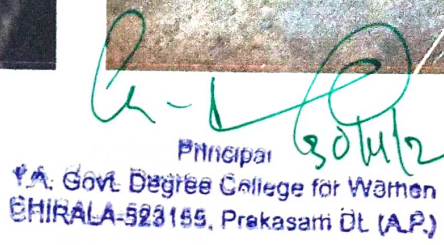 30/11/2
Principal
Y.A. Govt. Degree College for Women
CHIRALA-523155, Prakasam Dt. (A.P.)